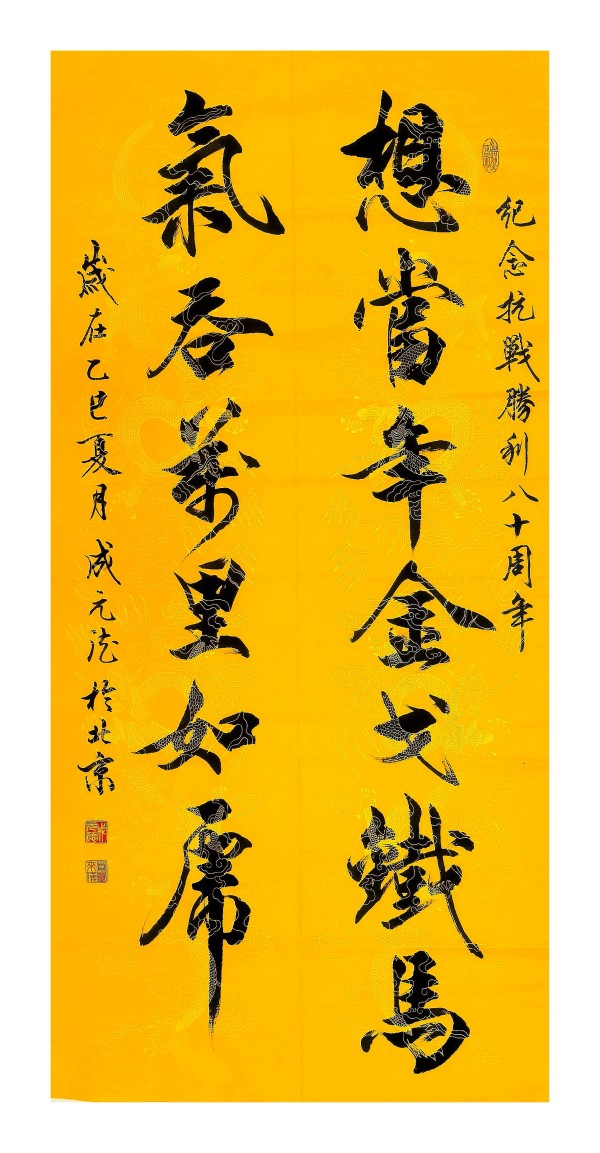 紀念抗戰勝利八十周年
想當年金戈鐵馬
氣吞萬里如虎
歲在乙巳夏月成元法於北京